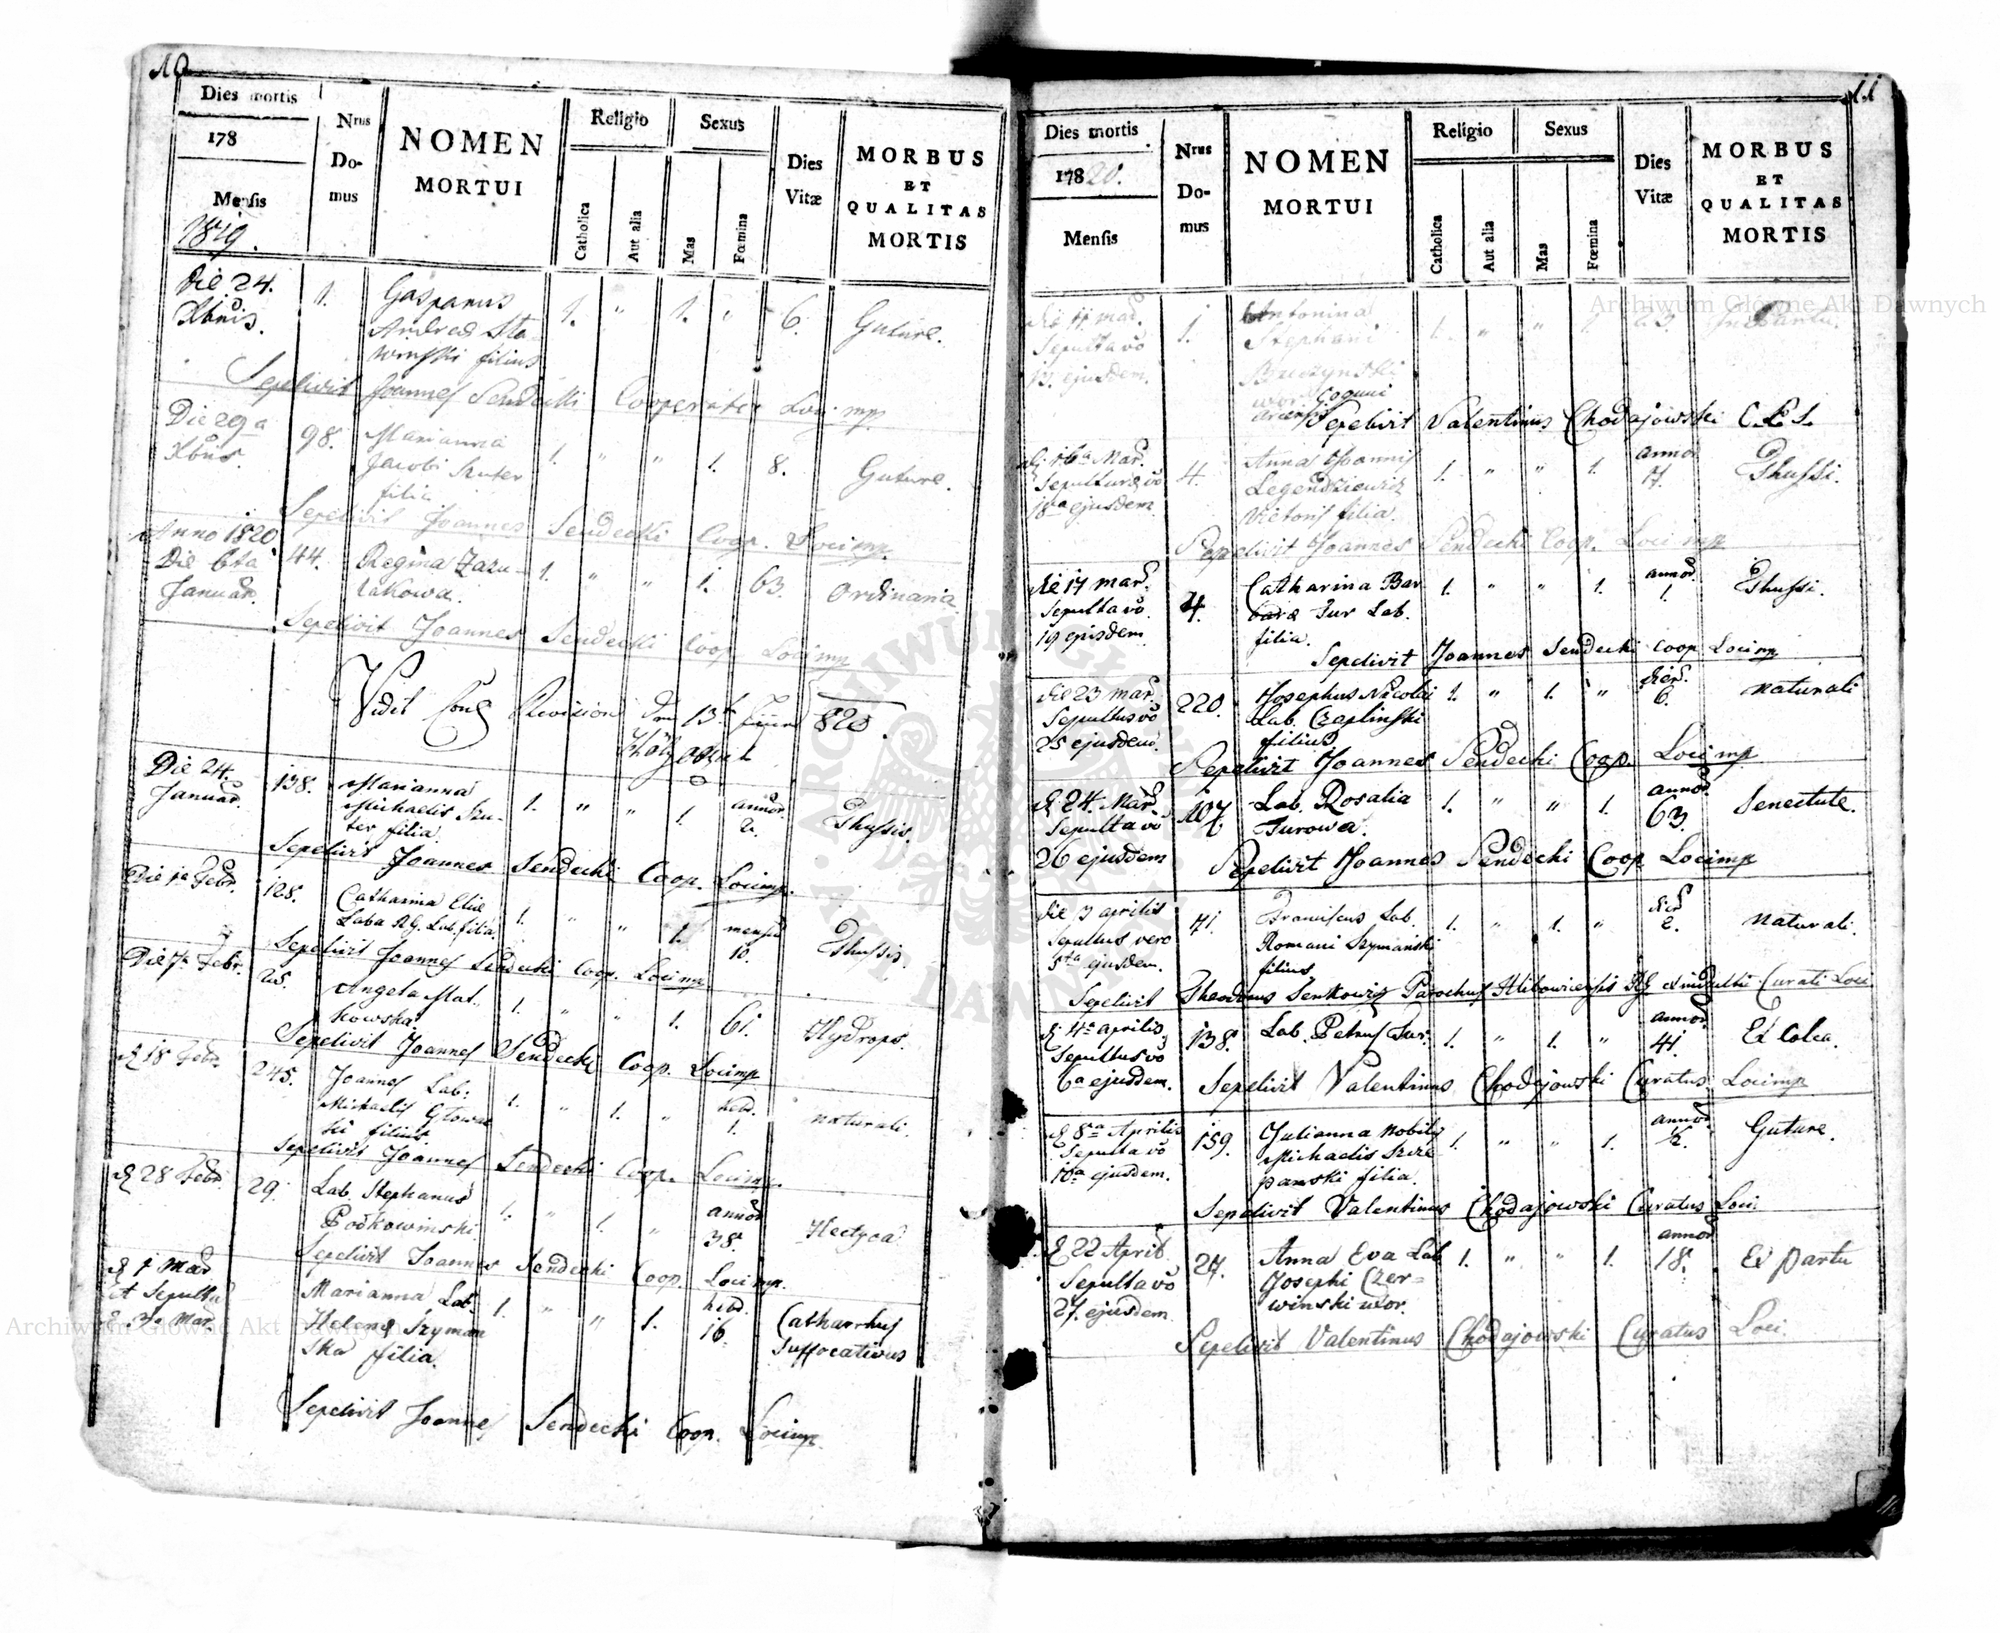 10
Dies mortis
178
Mensis
1819.
Nrus Domus
NOMEN
MORTUI
Religio
Catholica
Aut alia
Sexus
Mas
Fœmina
Dies Vitæ
MORBUS
ET
QUALITAS
MORTIS
Die 24. 1. Gasparus 1. " 1. " 6. Guture.
Xbris. Andreæ Sta-
winski filius
Sepelivit Joannes Sendecki Cooperator Loci mp
Die 29a 98. Marianna 1. " " 1. 8. Guture.
Xbris. Jacobi Szuter
filia
Sepelivit Joannes Sendecki Coop. Loci mp.
Anno 1820
Die 6ta 44. Regina Zazu- 1. " " 1. 63. Ordinaria
Januar. lakowa.
Sepelivit Joannes Sendecki Coop Loci mp
Vidit 13 820.
Die 24. 138. Marianna 1. " " 1. annor. Phussis.
Januar. Michaelis Szu- 2.
ter filia.
Sepelivit Joannes Sendecki Coop. Loci mp.
Die 1a Febr. 128. Catharina 1. " " 1. mensiu Phussis.
Lab. filia. 10.
Sepelivit Joannes Sendecki Coop. Loci mp
Die 7a Febr. 25. Angela Mat- 1. " " 1. 61. Hydrops.
kowska.
Sepelivit Joannes Sendecki Coop. Loci mp
D 18 Febr. 245. Joannes Lab. 1. " 1. " hebd. naturali.
Michaelis Glowac 1.
ki filius
Sepelivit Joannes Sendecki Coop. Loci mp.
D 28 Febr. 29. Lab. Stephanus 1. " 1. " annor Hectyca
Podkowinski 38.
Sepelivit Joannes Sendecki Coop. Loci mp.
D 1 Mar Marianna Lab. 1. " " 1. hebd. Catharrhus
Et Sepulta Helenæ Szyman 16. Suffocativus
D. 3a Mar. ska filia.
Sepelivit Joannes Sendecki Coop. Loci mp.
11
Dies mortis
17820.
Mensis
Nrus Domus
NOMEN
MORTUI
Religio
Catholica
Aut alia
Sexus
Mas
Fœmina
Dies Vitæ
MORBUS
ET
QUALITAS
MORTIS
Die 11 mar. 1. Antonina 1. " " 1. 23. Partu.
Sepulta vo Stephani
13. ejusdem. Buczynski
uxor
Sepelivit Valentinus Chodajowski C. L.
D. 16a Mar. 4. Anna Joannis 1. " " 1. annor 7. Phussi.
Sepulta vo Legendziewicz
18a ejusdem. Victoris filia.
Sepelivit Joannes Sendecki Coop. Loci mp
Die 17 mar. 4. Catharina Bar 1. " " 1. annor. 1. Phussi.
Sepulta vo baræ Tur Lab.
19 ejusdem filia.
Sepelivit Joannes Sendecki Coop Loci mp
Die 23 mar. 220. Josephus Nicolai 1. " 1. " dier. 6. naturali
Sepultus vo Lab. Czaplinski
25 ejusdem. filius
Sepelivit Joannes Sendecki Coop. Loci mp
D. 24. Mar. 107. Lab. Rosalia 1. " " 1. annor 63. Senectute.
Sepulta vo Turowa.
26 ejusdem Sepelivit Joannes Sendecki Coop Loci mp
Die 3 aprilis 71. Franciscus Lab. 1. " 1. " dier 2. naturali.
Sepultus vero Romani Szymanski
5ta ejusdem. filius
Sepelivit Theodorus Senkowicz Parochus RG Curati Loci
D. 4a aprilis 138. Lab. Petrus Tur. 1. " 1. " annor 41. Ex Colca.
Sepultus vo
6a ejusdem. Sepelivit Valentinus Chodajowski Curatus Loci mp
D 8a Aprilis 159. Julianna nobilis 1. " " 1. annor ½. Guture.
Sepulta vo Michaelis Szcze
10a ejusdem. panski filia.
Sepelivit Valentinus Chodajowski Curatus Loci.
D 22 April 27. Anna Eva Lab 1. " " 1. annor 18. Ex partu
Sepulta vo Josephi Czer=
27. ejusdem winski uxor.
Sepelivit Valentinus Chodajowski Curatus Loci.
Archiwum Główne Akt Dawnych
Archiwum Główne Akt Dawnych
ARCHIWUM GŁÓWNE AKT DAWNYCH